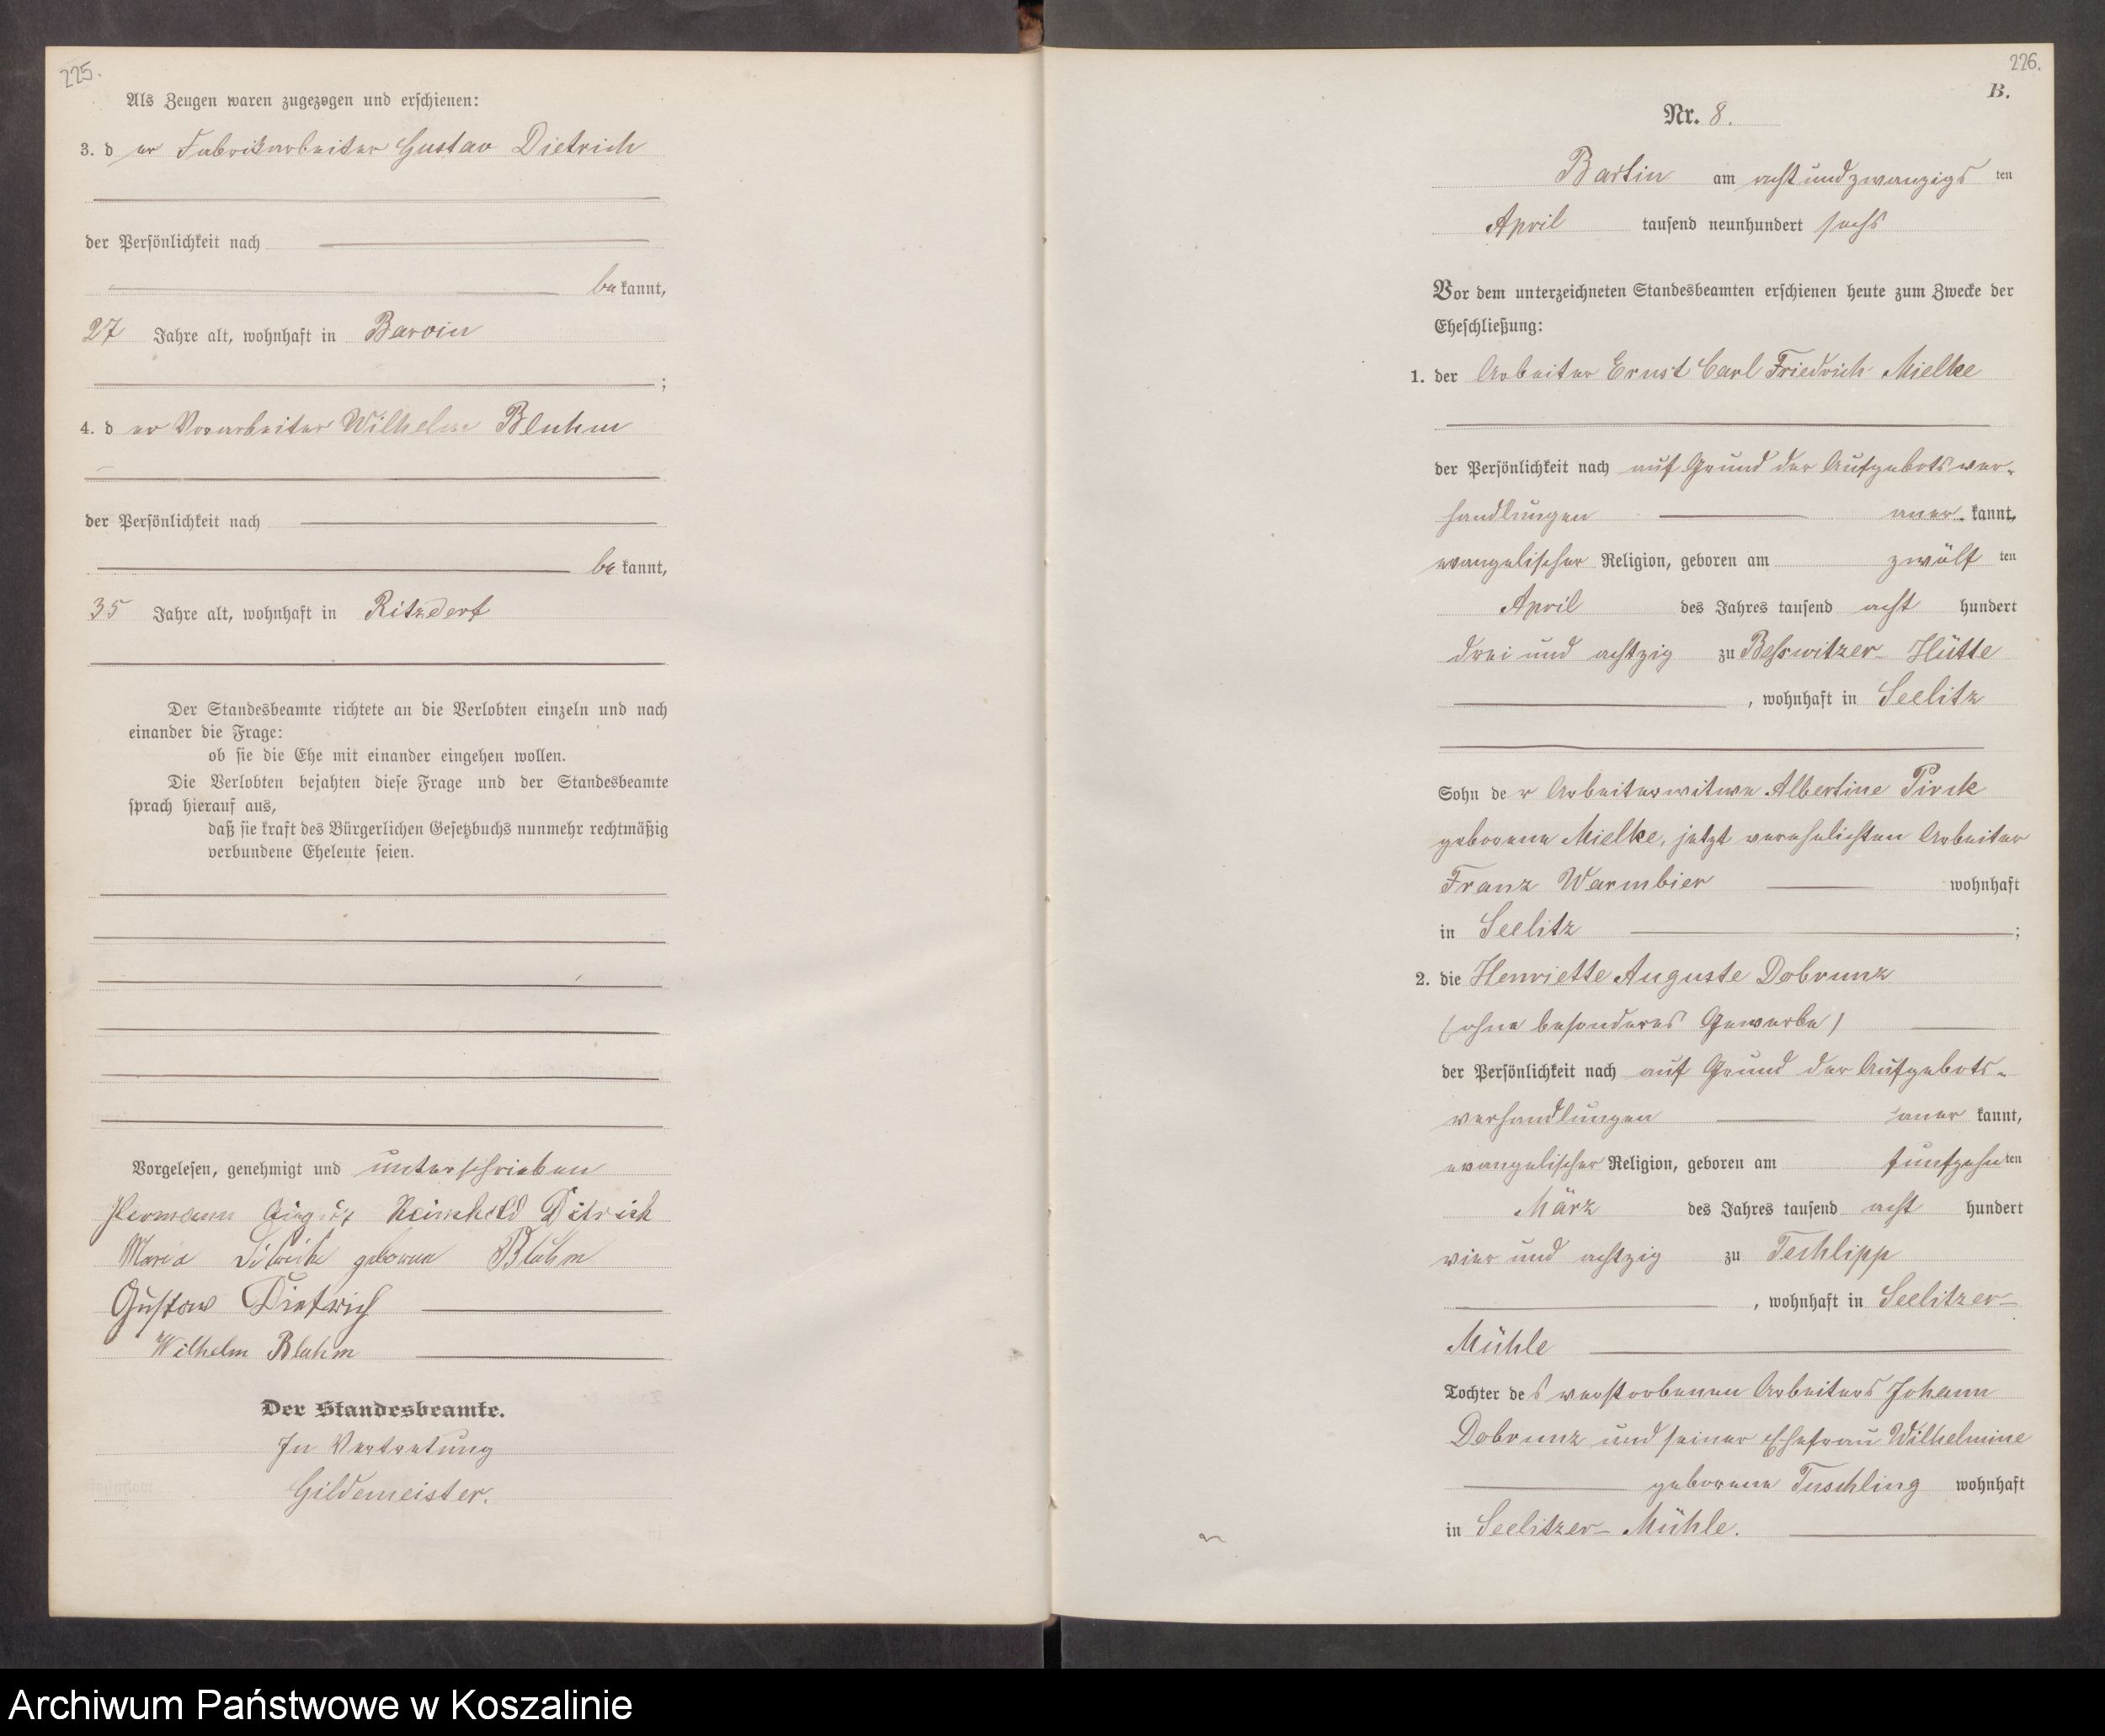 225.
Als Zeugen waren zugezogen und erschienen:
3. d er Fabrikarbeiter Gustav Dietrich
der Persönlichkeit nach
be kannt,
27 Jahre alt, wohnhaft in Barvin
;
4. d er Vorarbeiter Wilhelm Bluhm
der Persönlichkeit nach
be kannt,
35 Jahre alt, wohnhaft in Ritzdorf
Der Standesbeamte richtete an die Verlobten einzeln und nach
einander die Frage:
ob sie die Ehe mit einander eingehen wollen.
Die Verlobten bejahten diese Frage und der Standesbeamte
sprach hierauf aus,
daß sie kraft des Bürgerlichen Gesetzbuchs nunmehr rechtmäßig
verbundene Eheleute seien.
Vorgelesen, genehmigt und unterschrieben
Hermann Reinhold Ditrich
Maria geborene Bluhm
Gustav Dietrich
Wilhelm Bluhm
Der Standesbeamte.
In Vertretung
Gildemeister.
226.
B.
Nr. 8.
Bartin am achtundzwanzigs ten
April tausend neunhundert sechs
Vor dem unterzeichneten Standesbeamten erschienen heute zum Zwecke der
Eheschließung:
1. der Arbeiter Ernst Carl Friedrich Mielke
der Persönlichkeit nach auf Grund der Aufgebotsver-
handlungen aner kannt,
evangelischer Religion, geboren am zwölf ten
April des Jahres tausend acht hundert
drei und achtzig zu Besswitzer- Hütte
, wohnhaft in Seelitz
Sohn de r Arbeiterwitwe Albertine Pirck
geborene Mielke, jetzt verehelichten Arbeiter
Franz Warmbier wohnhaft
in Seelitz ;
2. die Henriette Auguste Dobrunz
(ohne besonderes Gewerbe)
der Persönlichkeit nach auf Grund der Aufgebots-
verhandlungen aner kannt,
evangelischer Religion, geboren am fünfzehn ten
März des Jahres tausend acht hundert
vier und achtzig zu Techlipp
, wohnhaft in Seelitzer-
Mühle
Tochter de s verstorbenen Arbeiters Johann
Dobrunz und seiner Ehefrau Wilhelmine
geborene Tuschling wohnhaft
in Seelitzer- Mühle.
Archiwum Państwowe w Koszalinie